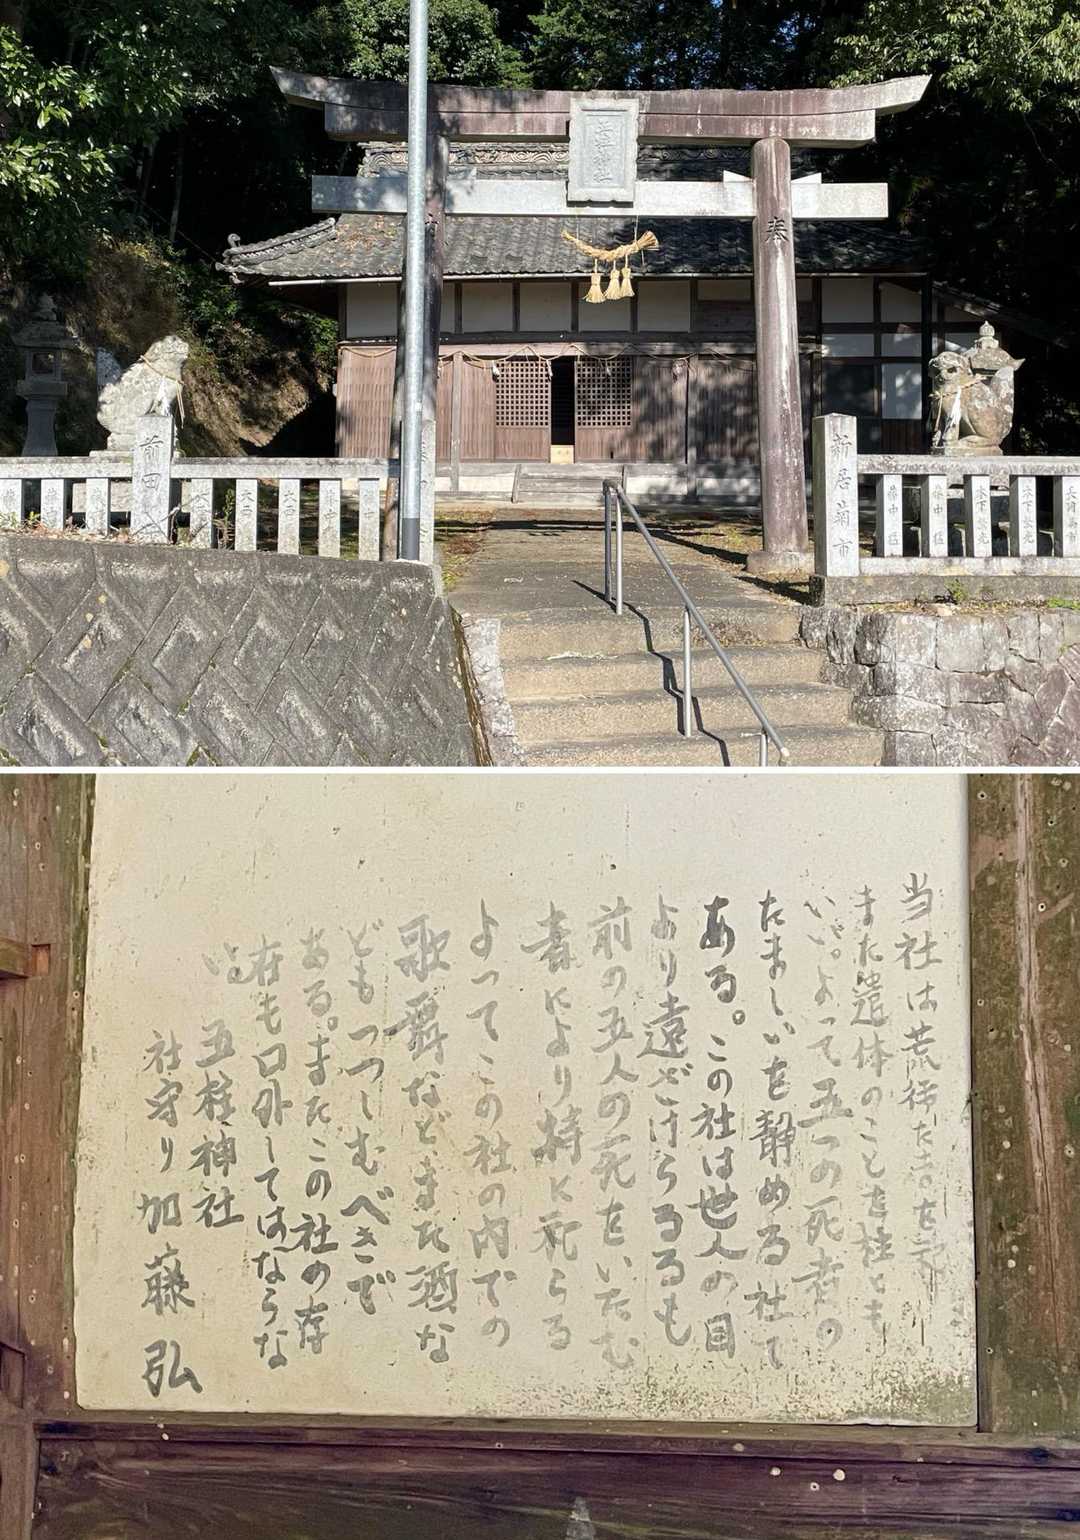 五柱神社
奉
前田
新居菊市
大西
大西
藤中
藤中
木下
木下
当社は荒御たまを
また遺体のことを柱とも
いい。よって五つの死者の
たましいを静める社で
ある。この社は世人の目
より遠ざけらるるも
前の五人の死をいたむ
者により特に祀らる
よってこの社の内での
歌舞などまた酒な
どもつつしむべきで
ある。またこの社の存
在も口外してはならな
い。
五柱神社
社守り 加藤弘